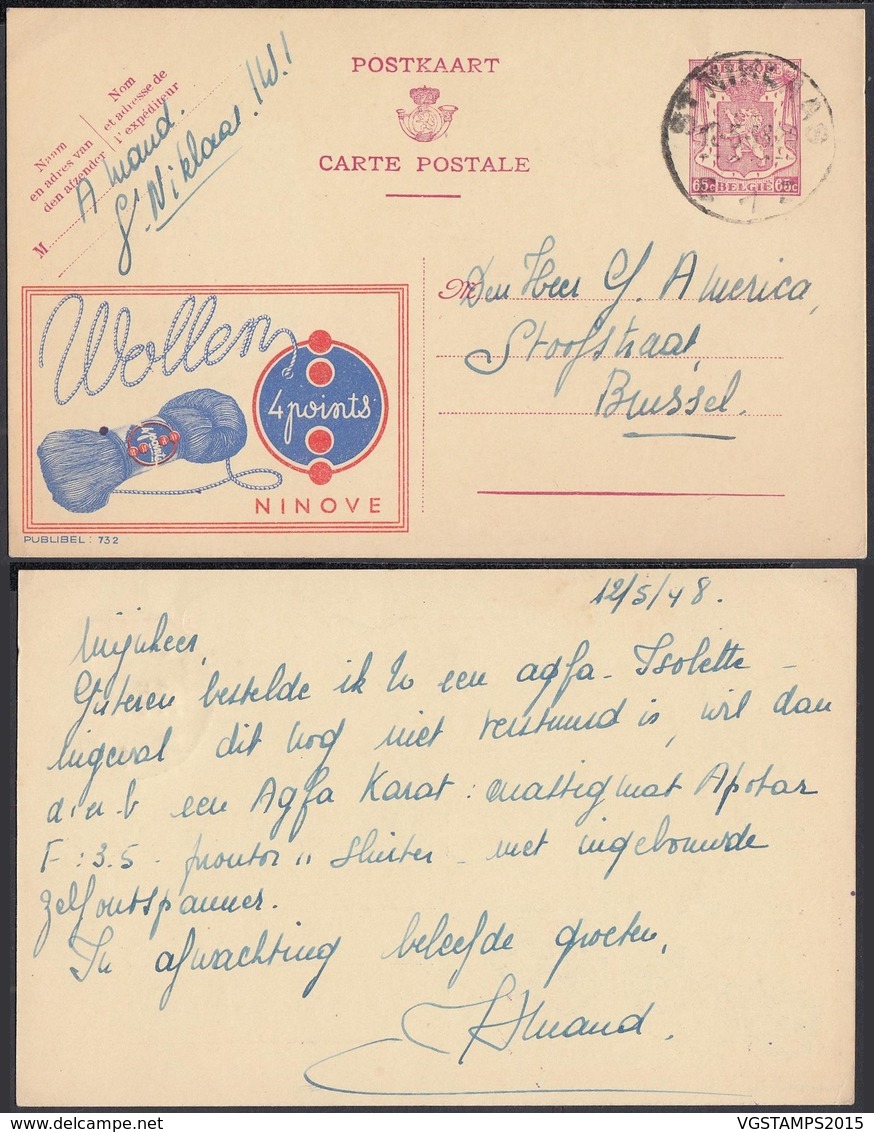 POSTKAART
CARTE POSTALE
Naam
en adres van
den afzender
Nom
et adresse de
l'expéditeur
M
Amand.
St Niklaas (W.)
BELGIQUE
65c BELGIË 65c
ST NIKLAAS
1
Wollen
4 points
4 points
NINOVE
PUBLIBEL : 732
M
Den Heer G. America,
Stoofstraat,
Brussel.
12/5/48.
Mijnheer,
Gisteren bestelde ik U een agfa - Isolette -
Ingeval dit nog niet verstuurd is, wil dan
een Agfa Karat : Apotar
F : 3.5 - prontor " shuter - met ingebouwde
zelfontspanner.
In afwachting beleefde groeten,
Amand.
www.delcampe.net
VGSTAMPS2015